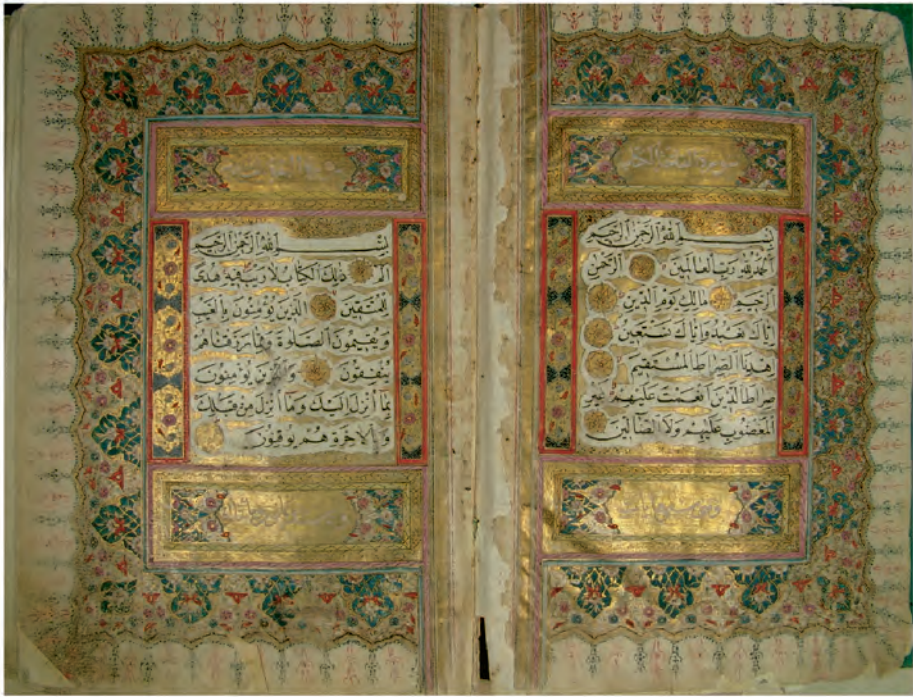 سورة فاتحة الكتاب
بِسْمِ اللّٰهِ الرَّحْمٰنِ الرَّحِيمِ
اَلْحَمْدُ لِلّٰهِ رَبِّ الْعَالَمِينَ الرَّحْمٰنِ
الرَّحِيمِ مَالِكِ يَوْمِ الدِّينِ
اِيَّاكَ نَعْبُدُ وَاِيَّاكَ نَسْتَعِينُ
اِهْدِنَا الصِّرَاطَ الْمُسْتَقِيمَ
صِرَاطَ الَّذِينَ اَنْعَمْتَ عَلَيْهِمْ غَيْرِ
الْمَغْضُوبِ عَلَيْهِمْ وَلَا الضَّالِّينَ
وهي سبع آيات
سورة البقرة
بِسْمِ اللّٰهِ الرَّحْمٰنِ الرَّحِيمِ
الم ذٰلِكَ الْكِتَابُ لَا رَيْبَ فِيهِ هُدًى
لِلْمُتَّقِينَ الَّذِينَ يُؤْمِنُونَ بِالْغَيْبِ
وَيُقِيمُونَ الصَّلٰوةَ وَمِمَّا رَزَقْنَاهُمْ
يُنْفِقُونَ وَالَّذِينَ يُؤْمِنُونَ
بِمَا اُنْزِلَ اِلَيْكَ وَمَا اُنْزِلَ مِنْ قَبْلِكَ
وَبِالْاٰخِرَةِ هُمْ يُوقِنُونَ